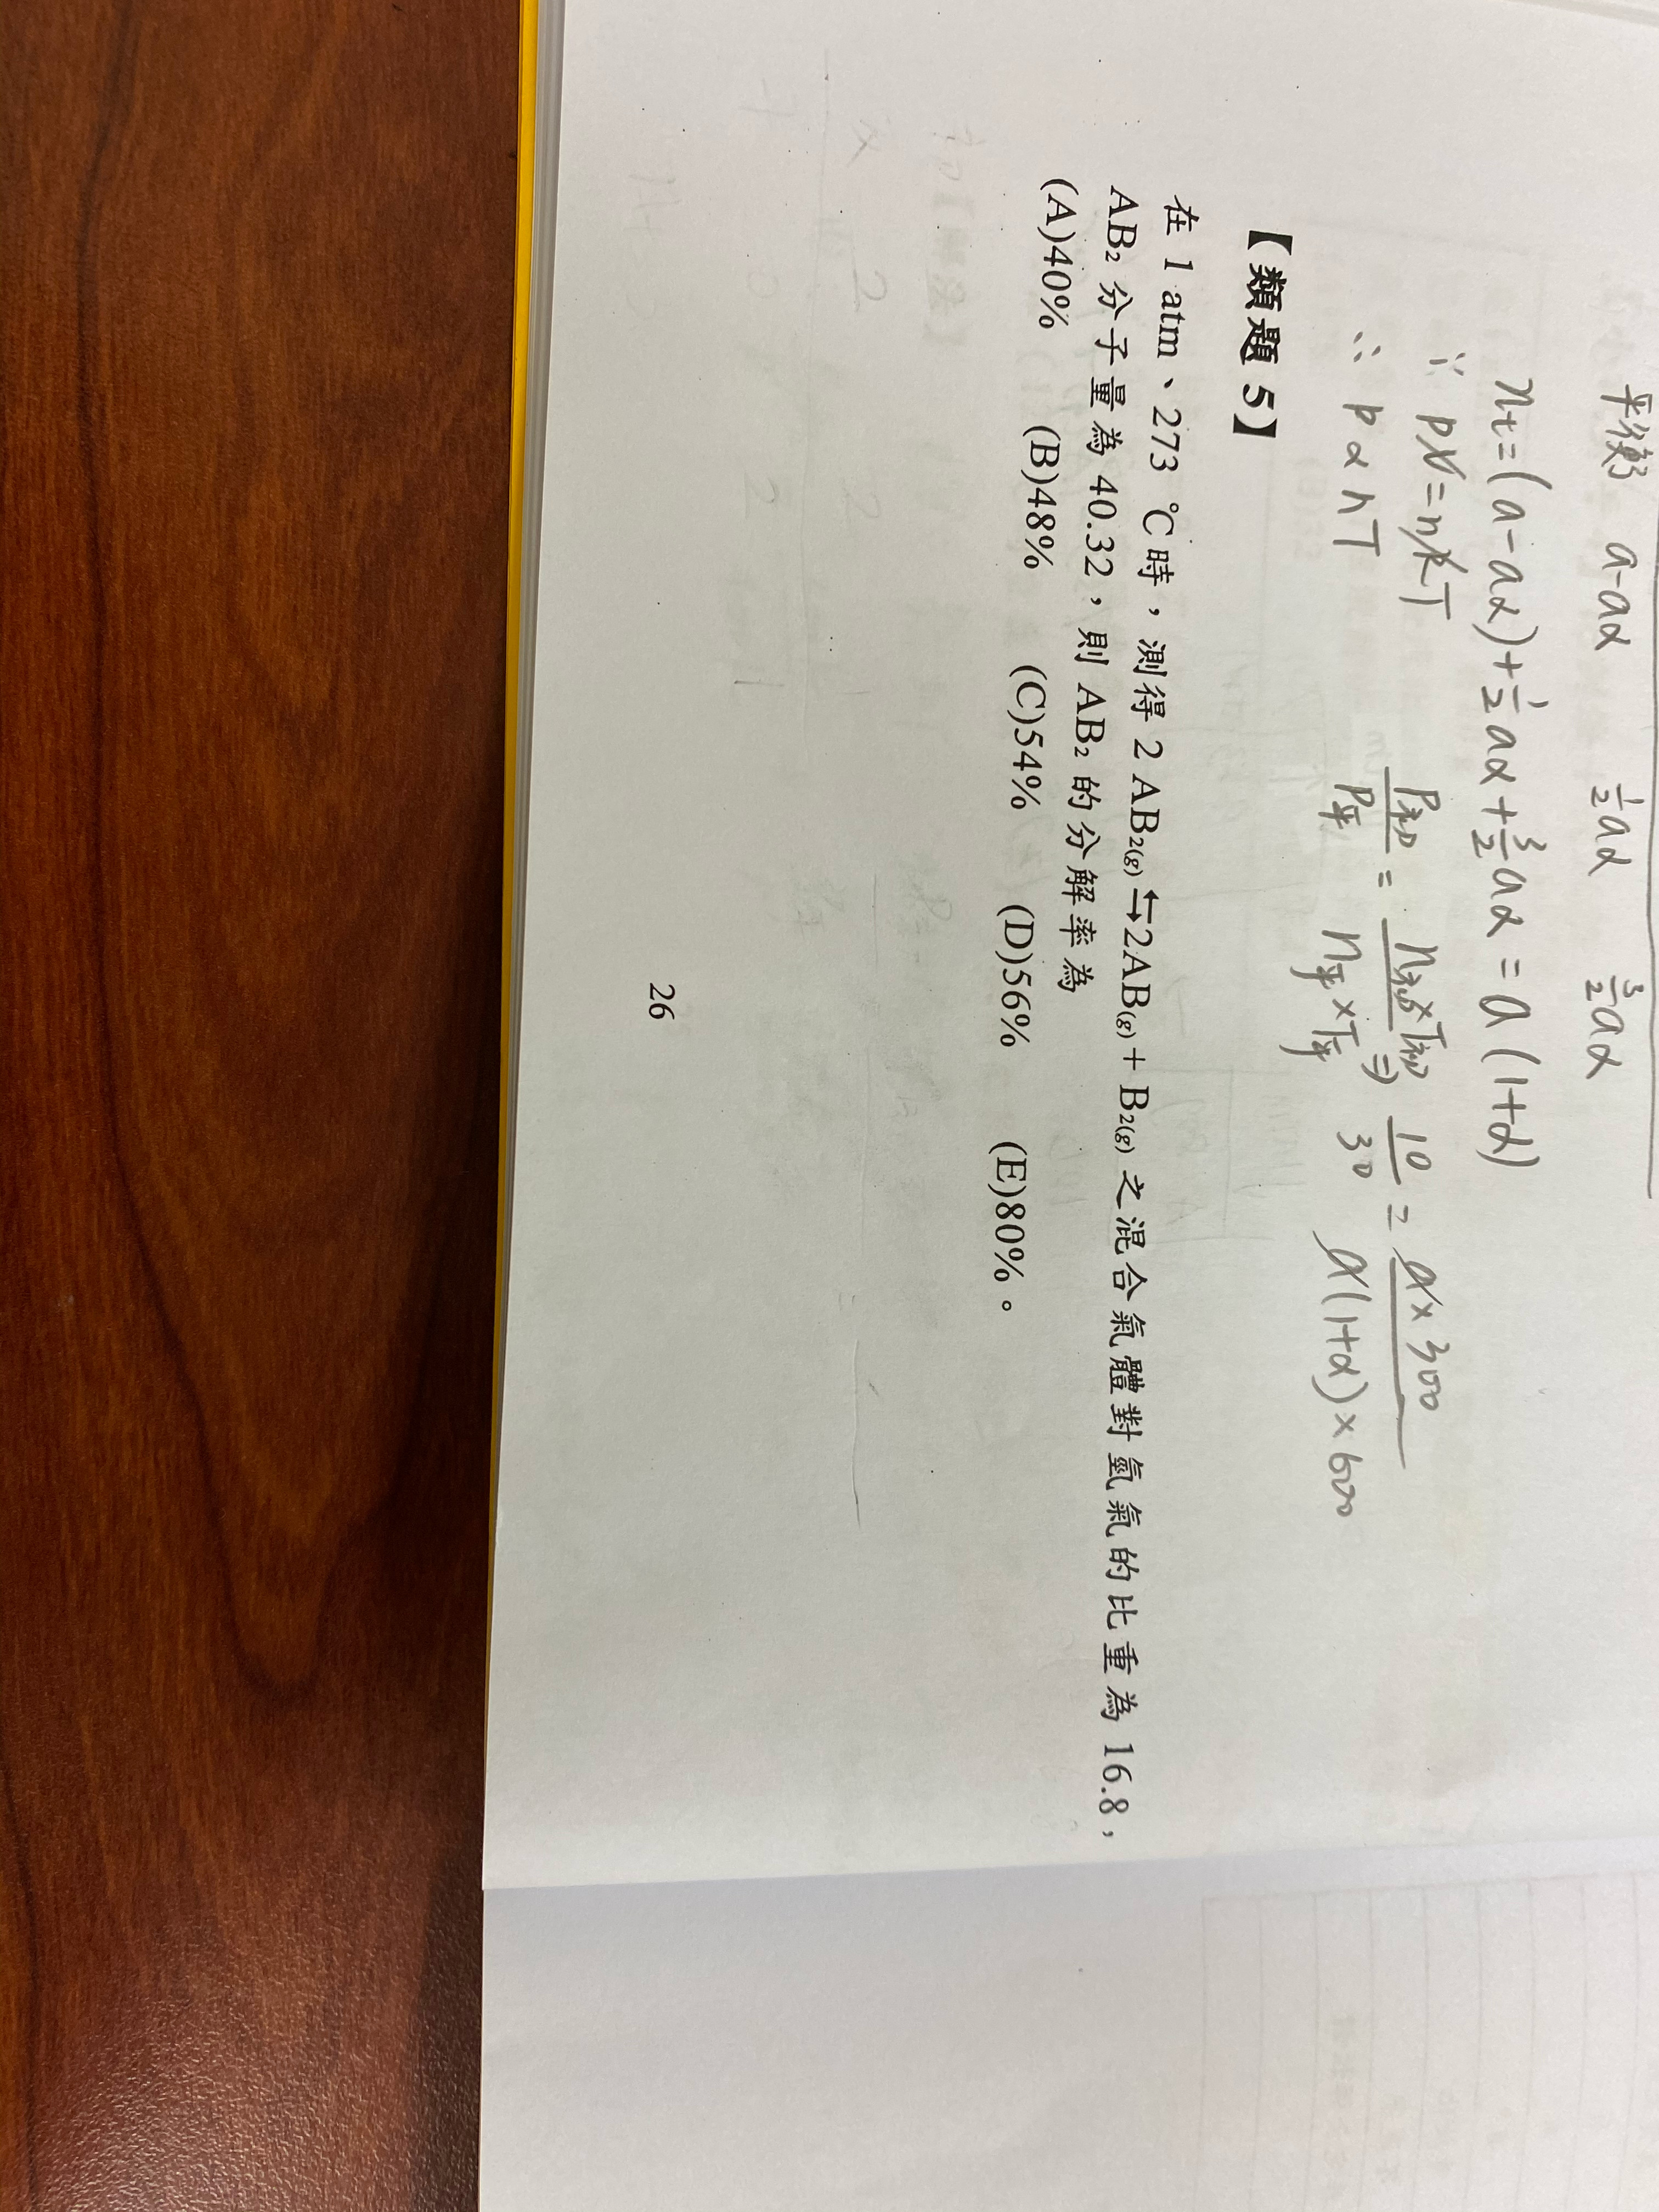 平衡 a-aα ½aα 3/2aα
nt=(a-aα)+½aα+3/2aα=a(1+α)
∵ PV=nRT
∴ P α nT P初/P平 = n初×T初/n平×T平 ⇒ 10/30 = a×300/a(1+α)×600
【類題 5】
在 1 atm、273 ℃時，測得 2 AB₂(g)⇆2AB(g)+ B₂(g) 之混合氣體對氫氣的比重為 16.8，
AB₂ 分子量為 40.32，則 AB₂ 的分解率為
(A)40% (B)48% (C)54% (D)56% (E)80%。
26